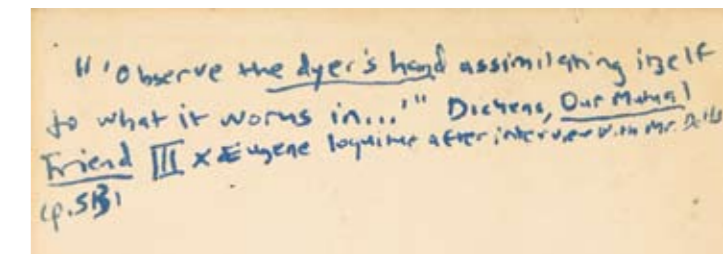 "'Observe the dyer's hand assimilating itself
to what it works in...'" Dickens, Our Mutual
Friend III x Eugene loquitur after interview with Mr. Dolls
(p.